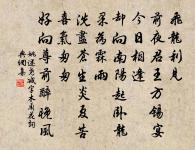 飛龍利見
前夜君王方錫宴
今日相逢
却向南陽起臥龍
果為霖雨
洗盡蒼生炎夏苦
喜氣匆匆
好向尊前醉晚風
姚述堯減字木蘭花詞